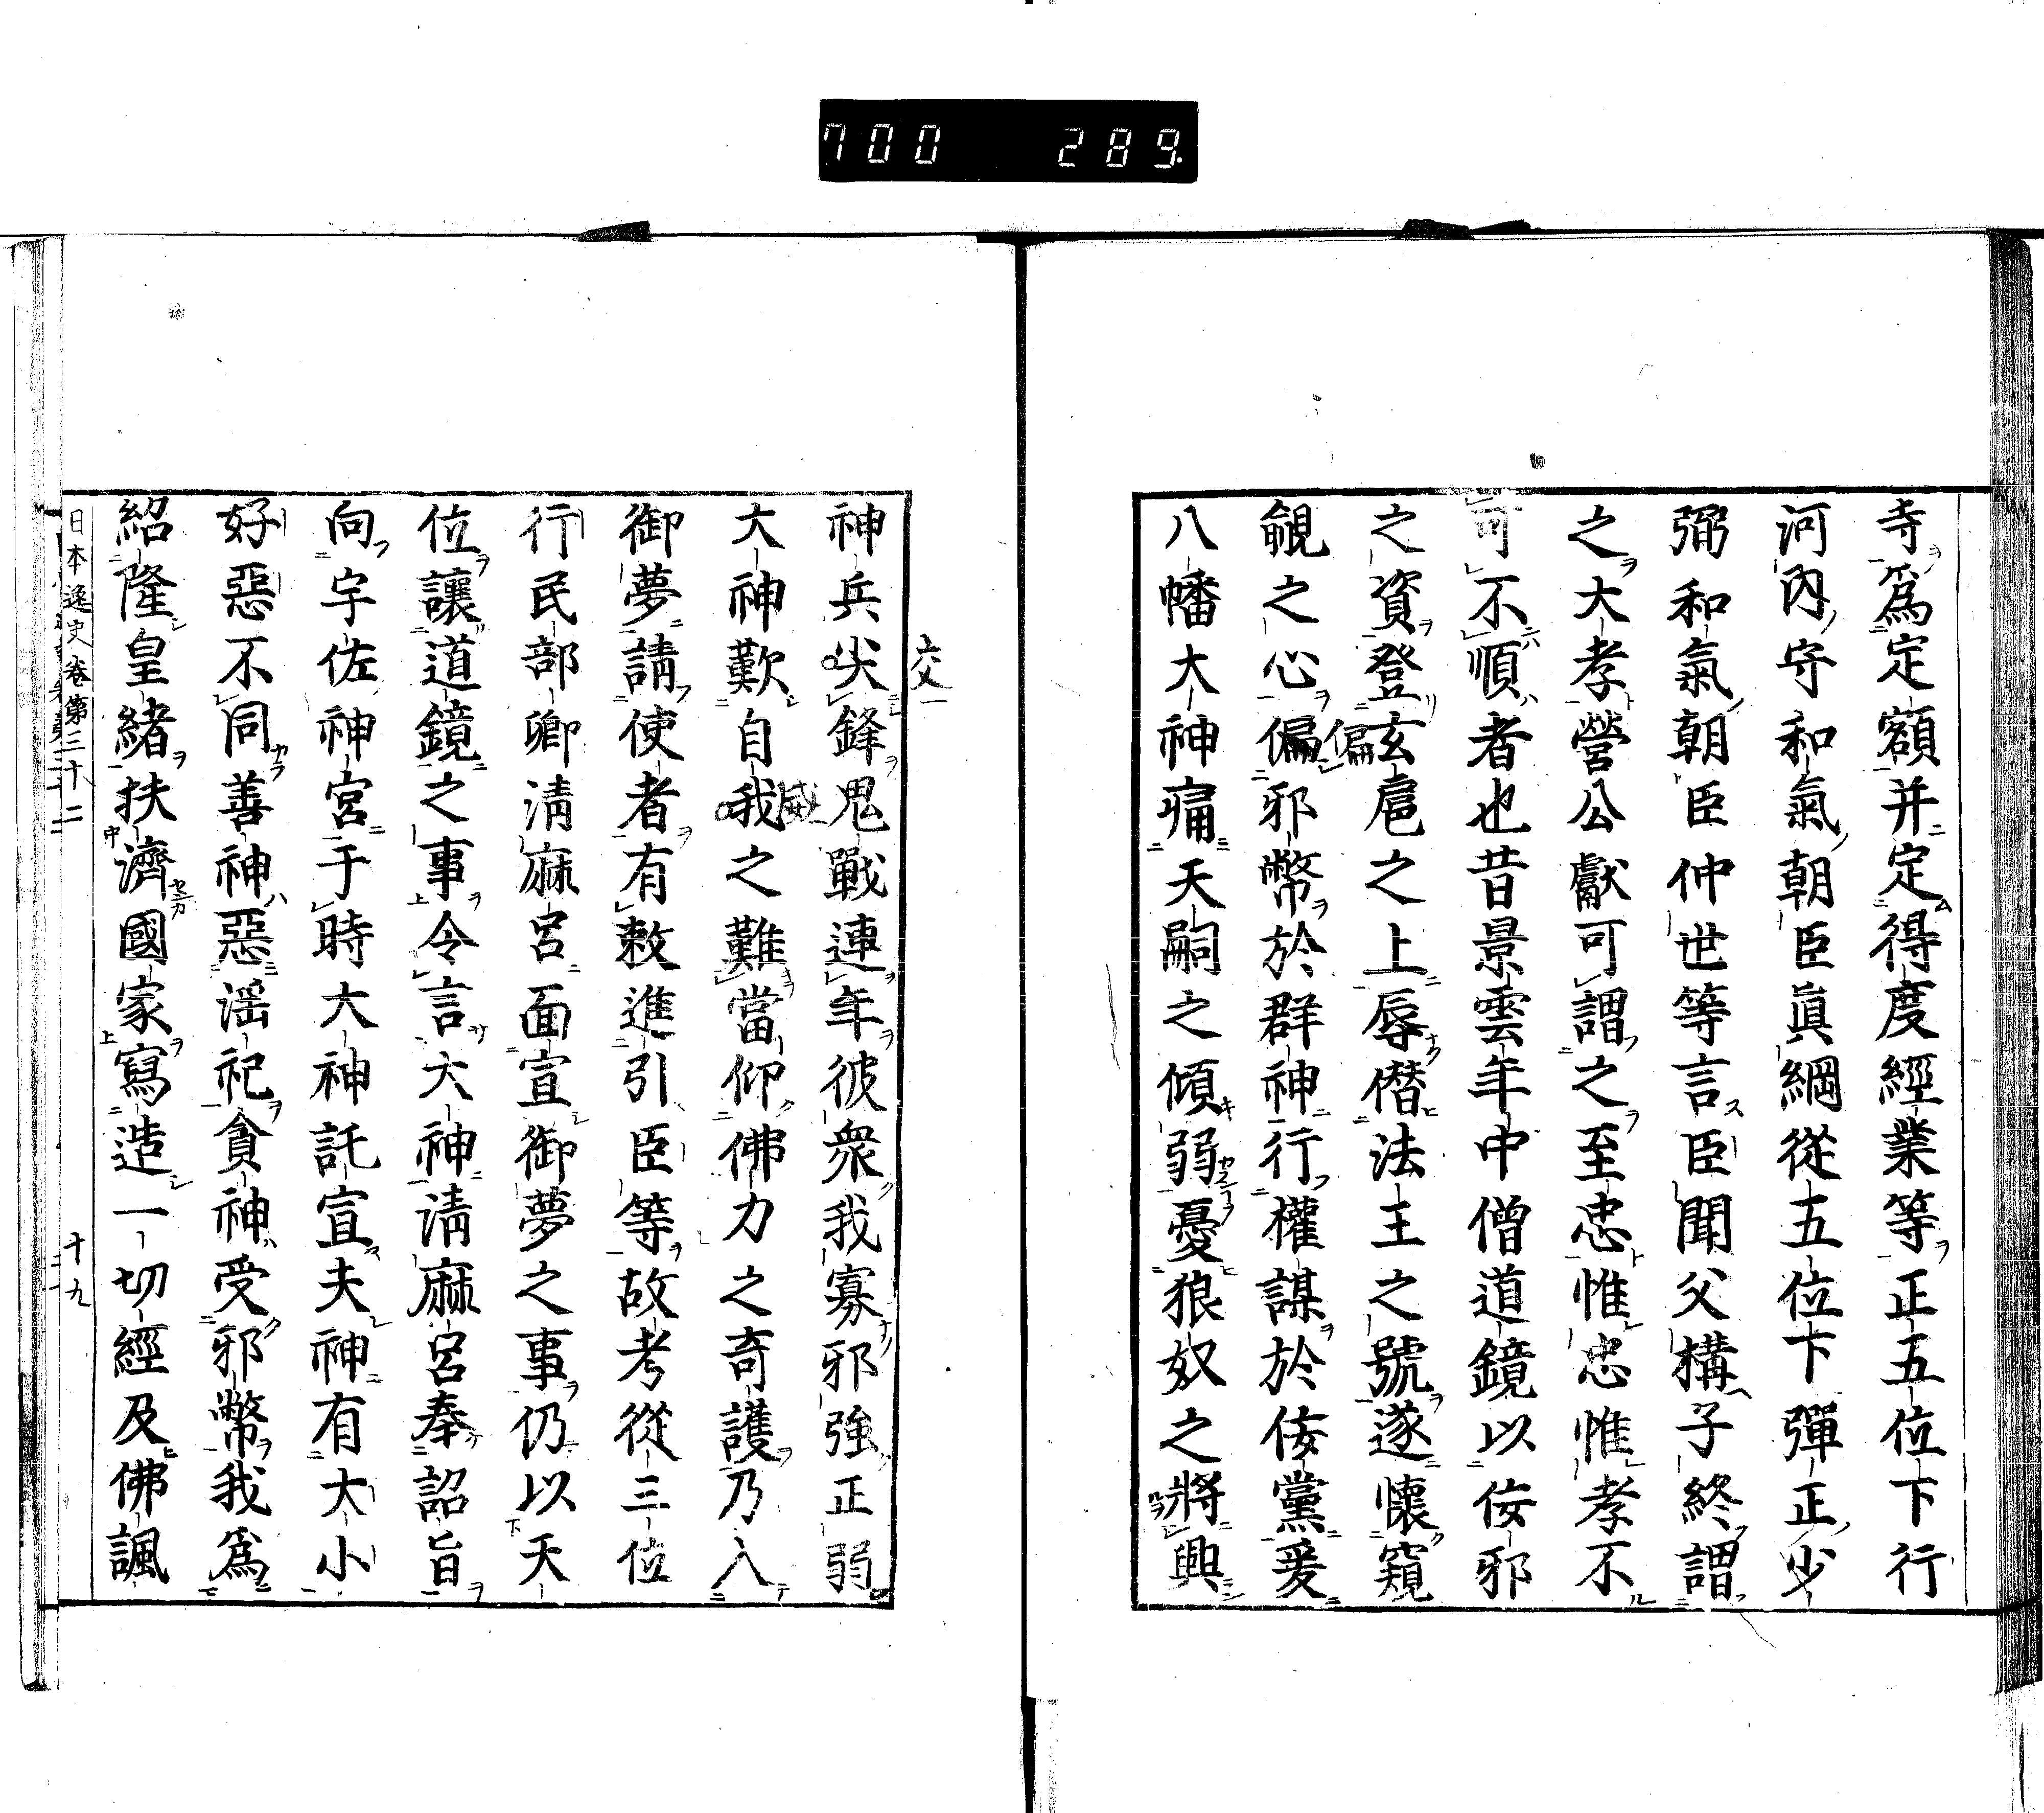 700 289.
寺爲定額并定得度經業等正五位下行
河內守和氣朝臣眞綱從五位下彈正少
弼和氣朝臣仲世等言臣聞父構子終謂
之大孝營公獻可謂之至忠惟忠惟孝不
可不順者也昔景雲年中僧道鏡以佞邪
之資登玄扈之上辱僭法王之號遂懷窺
覦之心偏邪幣於群神行權謀於佞黨爰
偏
八幡大神痛天嗣之傾弱憂狼奴之將興
神兵尖鋒鬼戰連年彼衆我寡邪強正弱
交
大神歎自我之難當仰佛力之奇護乃入
威
御夢請使者有敕進引臣等故考從三位
行民部卿清麻呂面宣御夢之事仍以天
位讓道鏡之事令言大神清麻呂奉詔旨
向宇佐神宮于時大神託宣夫神有大小
好惡不同善神惡淫祀貪神受邪幣我爲
紹隆皇緒扶濟國家寫造一切經及佛諷
日本逸史卷第三十二 十九